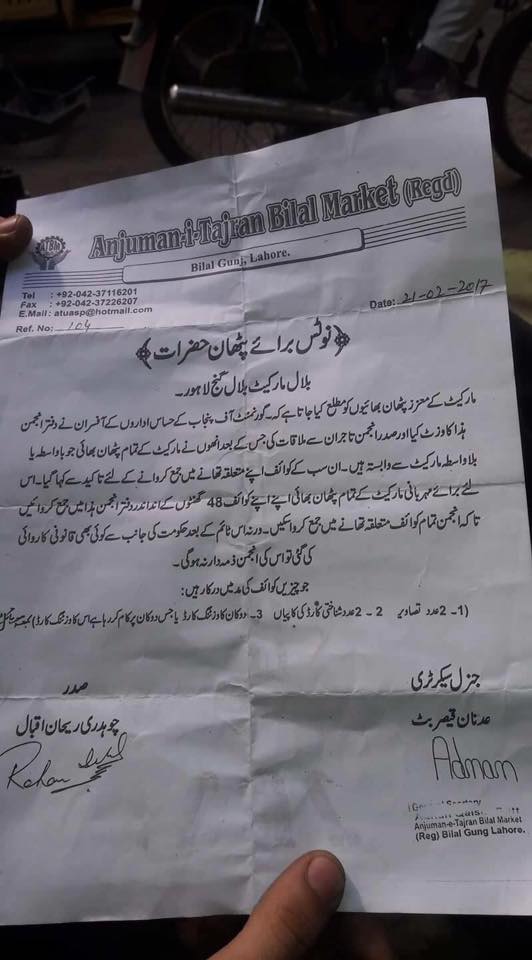 ATBM
Anjuman-i-Tajran Bilal Market (Regd)
Bilal Gunj, Lahore.
Tel : +92-042-37116201
Fax : +92-042-37226207
E.Mail : atuasp@hotmail.com
Ref. No: 104
Date: 21-02-2017
نوٹس برائے پٹھان حضرات
بلال مارکیٹ بلال گنج لاہور۔
مارکیٹ کے معزز پٹھان بھائیوں کو مطلع کیا جاتا ہے کہ۔ گورنمنٹ آف پنجاب کے حساس اداروں کے آفسران نے دفتر انجمن
ھذا کا وزٹ کیا اور صدر انجمن تاجران سے ملاقات کی جس کے بعد انھوں نے مارکیٹ کے تمام پٹھان بھائی جو باواسطہ یا
بلاواسطہ مارکیٹ سے وابستہ ہیں۔ ان سب کے کوائف اپنے متعلقہ تھانے میں جمع کروانے کے لئے تاکید سے کہا گیا۔ اس
لئے برائے مہربانی مارکیٹ کے تمام پٹھان بھائی اپنے اپنے کوائف 48 گھنٹوں کے اندر اندر دفتر انجمن ہذا میں جمع کروائیں
تاکہ انجمن تمام کوائف متعلقہ تھانے میں جمع کرواسکیں۔ ورنہ اس ٹائم کے بعد حکومت کی جانب سے کوئی بھی قانونی کاروائی
کی گئی تو اس کی انجمن ذمہ دار نہ ہوگی۔
جو چیزیں کوائف کی مد میں درکار ہیں:
(1- 2 عدد تصاویر 2- 2 عدد شناختی کارڈ کی کاپیاں 3- دوکان کا وزٹنگ کارڈ یا جس دوکان پر کام کر رہا ہے اس کا وزٹنگ کارڈ)
جنرل سیکرٹری
صدر
عدنان قیصر بٹ
چوہدری ریحان اقبال
Adnan
Rehan
General Secretary
Anjuman-e-Tajran Bilal Market
(Reg) Bilal Gung Lahore.